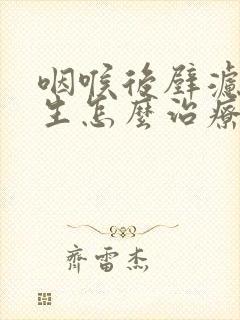 咽喉後壁濾
生怎麼治療
齊雷杰